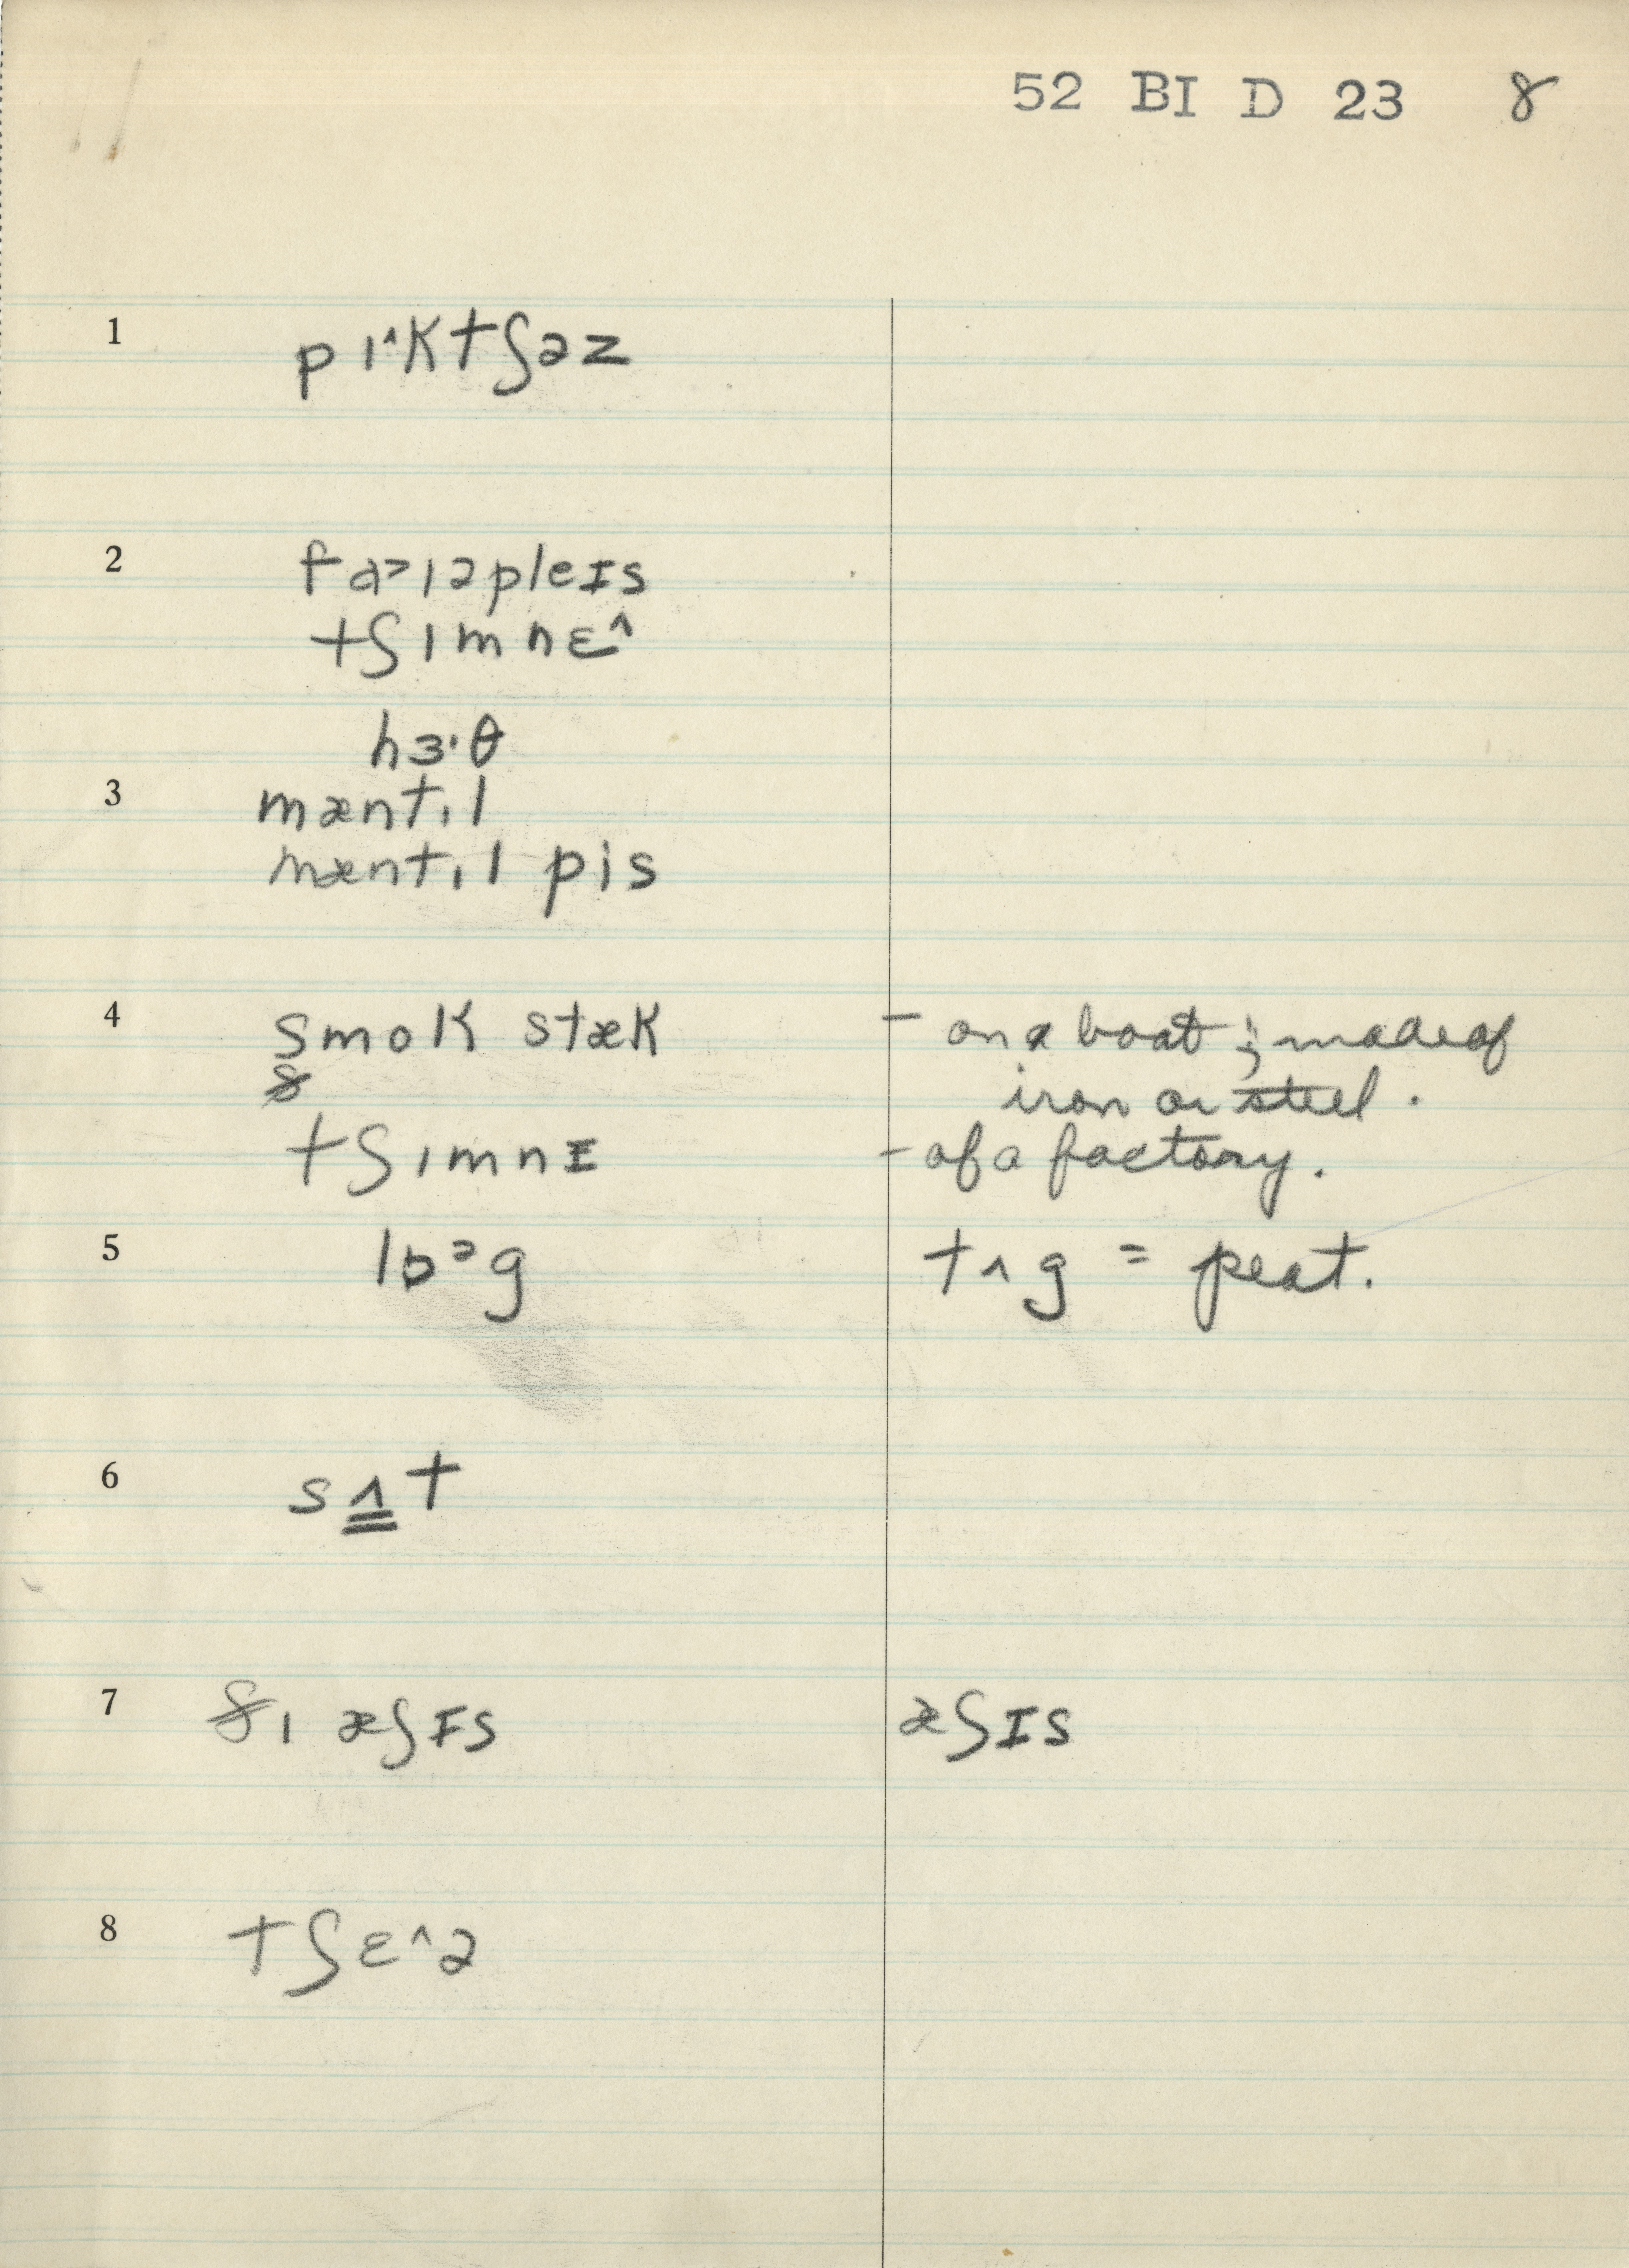 52 BI D 23 8
1 pɪ^ktʃəz
2 fɑ>ɪəpleɪs
tʃɪmnɛ^
hɜ·θ
3 mæntɪl
mæntɪl pis
4 smok stæk – on a boat; made of
iron or steel.
tʃɪmnɪ – of a factory.
5 lɒᵊg tʌg = peat.
6 sʌt
7 ðɪ æʃɪs æʃɪs
8 tʃɛ^ə